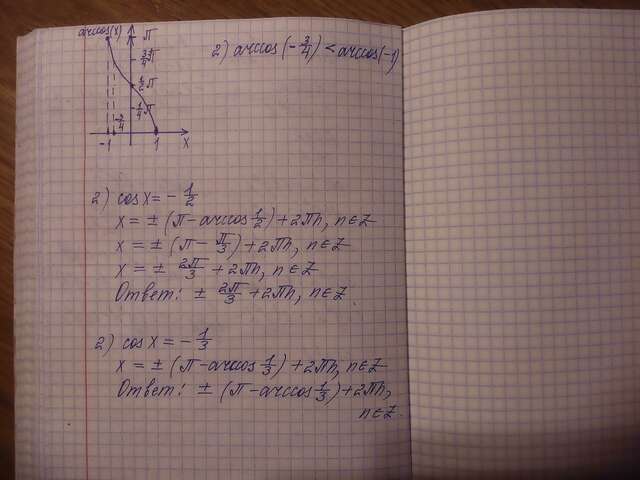 arccos(x)
π
3/4 π
1/2 π
1/4 π
-1
-3/4
1
x
2) arccos(-3/4) < arccos(-1)
2) cos x = - 1/2
x = ± (π - arccos 1/2) + 2πn, n∈Z
x = ± (π - π/3) + 2πn, n∈Z
x = ± 2π/3 + 2πn, n∈Z
Ответ: ± 2π/3 + 2πn, n∈Z
2) cos x = - 1/3
x = ± (π - arccos 1/3) + 2πn, n∈Z
Ответ: ± (π - arccos 1/3) + 2πn,
n∈Z